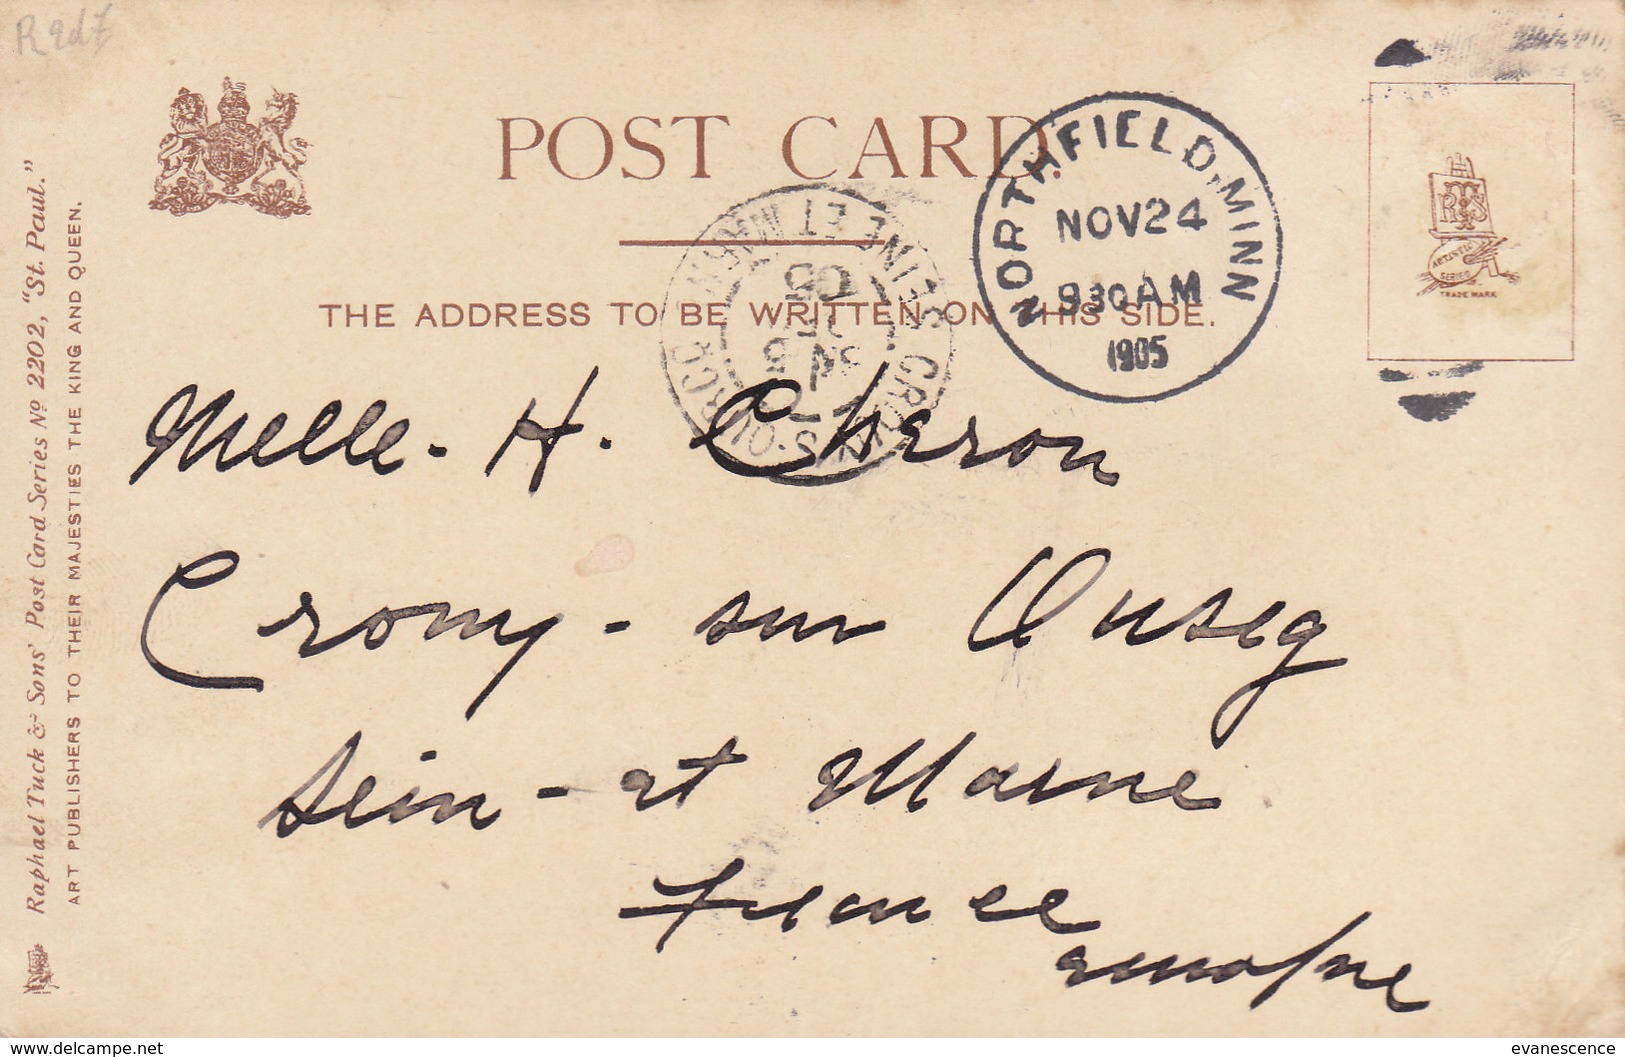 POST CARD
THE ADDRESS TO BE WRITTEN ON THIS SIDE.
NORTHFIELD, MINN
NOV 24
930 AM
1905
CROUY S-OURCQ
SEINE ET MARNE
05
RTS
ARTISTIC
SERIES
TRADE MARK
Melle - H. Cheron
Crony - sur Ourcq
Sein - et Marne
France
Europe
Raphael Tuck & Sons' Post Card Series Nº 2202, "St. Paul."
ART PUBLISHERS TO THEIR MAJESTIES THE KING AND QUEEN.
https://www.delcampe.net
evanescence